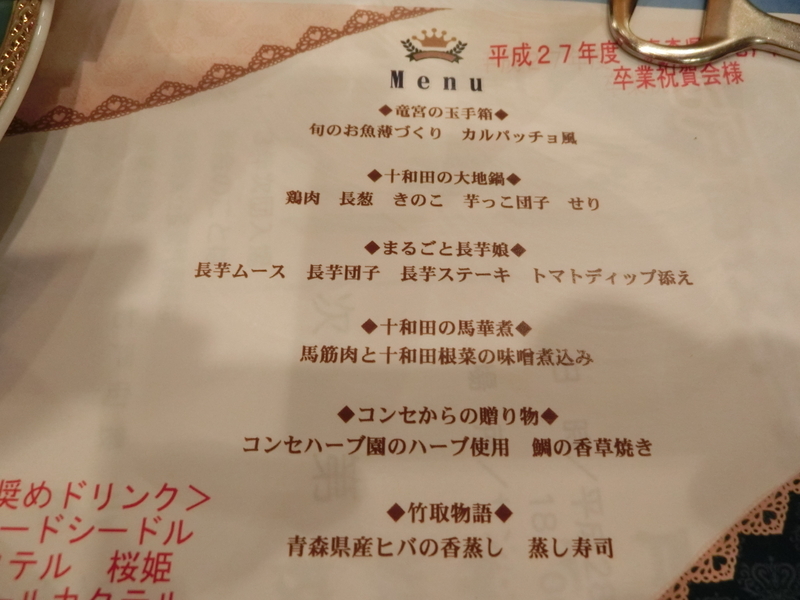 平成27年度
卒業祝賀会様
Menu
◆竜宮の玉手箱◆
旬のお魚薄づくり　カルパッチョ風
◆十和田の大地鍋◆
鶏肉　長葱　きのこ　芋っこ団子　せり
◆まるごと長芋娘◆
長芋ムース　長芋団子　長芋ステーキ　トマトディップ添え
◆十和田の馬華煮◆
馬筋肉と十和田根菜の味噌煮込み
◆コンセからの贈り物◆
コンセハーブ園のハーブ使用　鯛の香草焼き
◆竹取物語◆
青森県産ヒバの香蒸し　蒸し寿司
奨めドリンク＞
ードシードル
テル　桜姫
ールカクテル